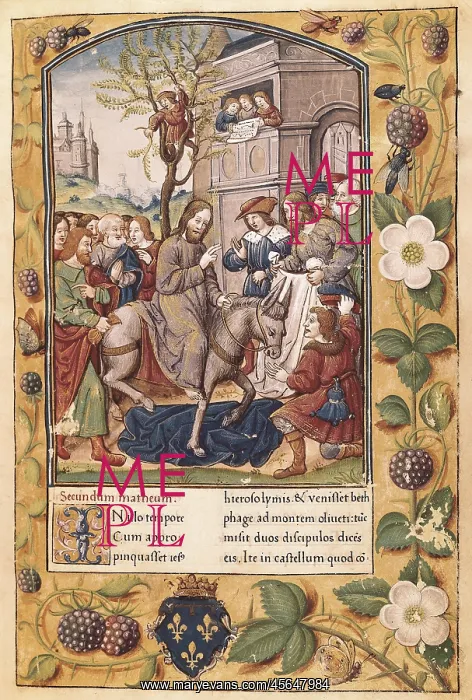 ME
PL
ME
PL
Secundum matheum.
IN illo tenpore
Cum appro
pinquasset
hierosolymis. & venisset beth
phage ad montem oliueti: tūc
misit duos discipulos dicēs
eis, Ite in castellum quod cō
www.maryevans.com/45647984